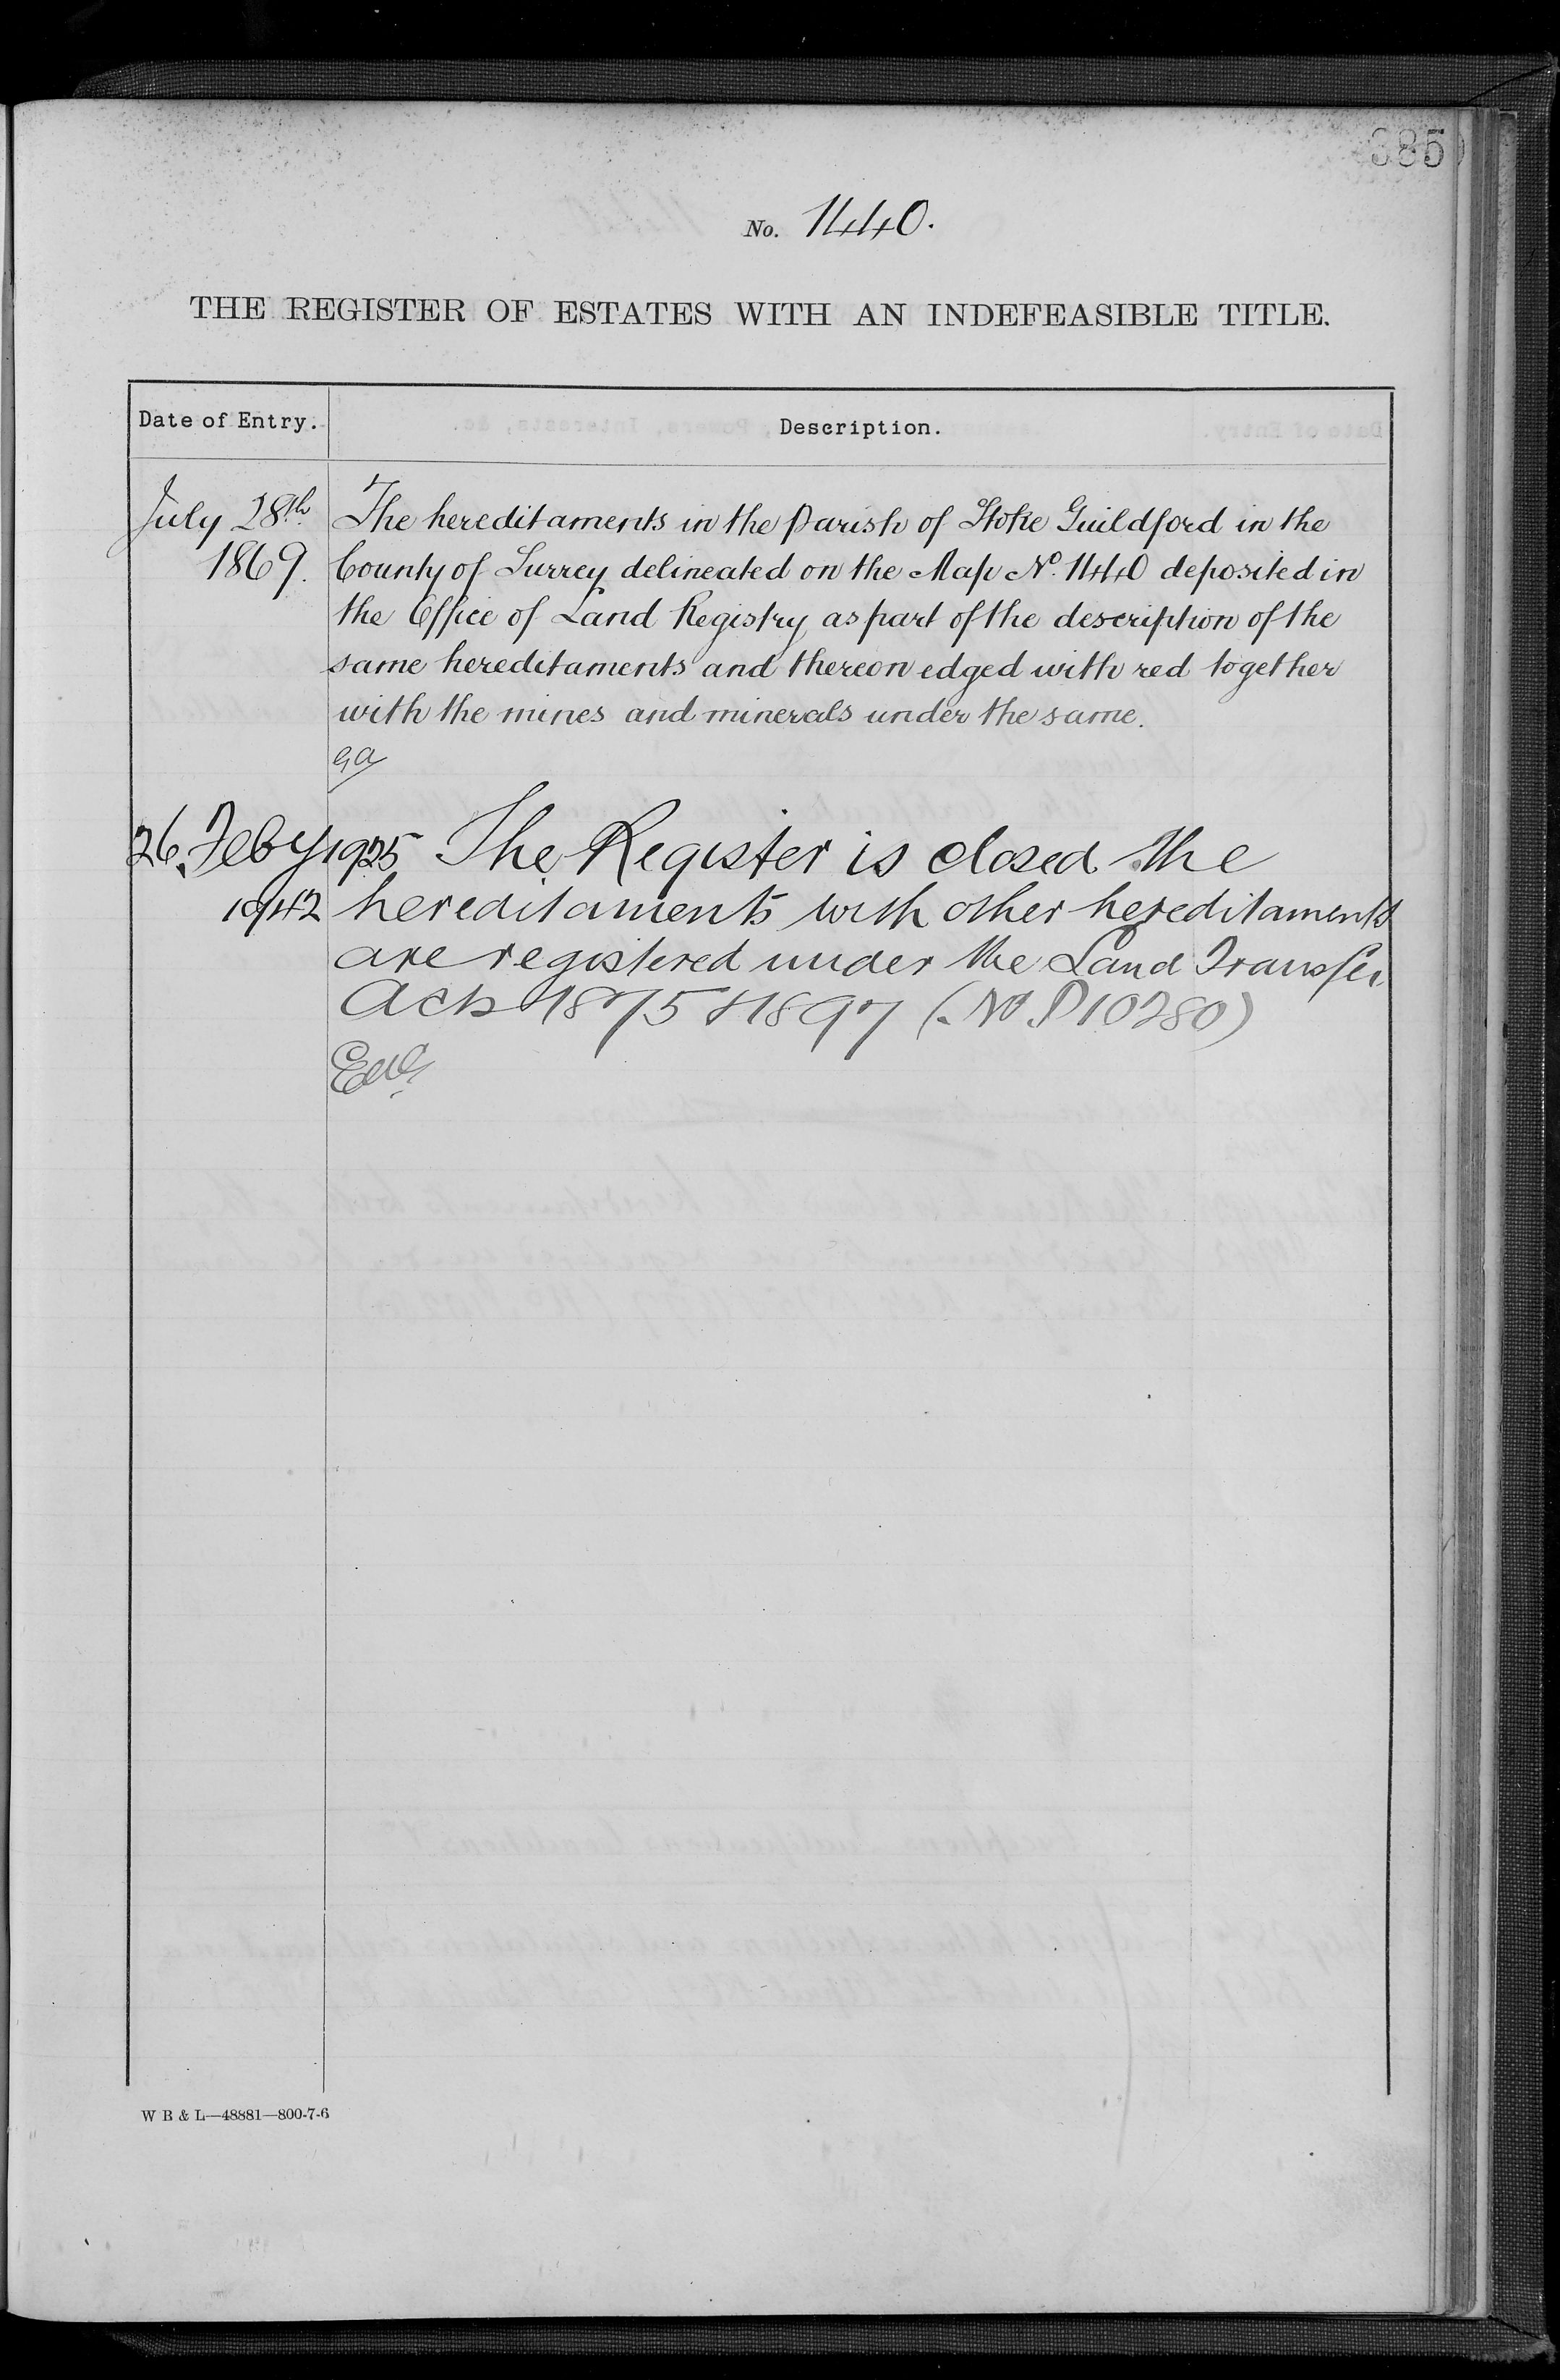 385
No. 1440.
THE REGISTER OF ESTATES WITH AN INDEFEASIBLE TITLE.
Date of Entry. Description.
July 28th The hereditaments in the Parish of Stoke Guildford in the
1869. County of Surrey delineated on the Map No. 1440 deposited in
the Office of Land Registry as part of the description of the
same hereditaments and thereon edged with red together
with the mines and minerals under the same.
26. Feby 1925 The Register is closed the
hereditaments with other hereditaments
are registered under the Land Transfer
Acts 1875 & 1897 (No. P10280)
W B & L—48881—800-7-6